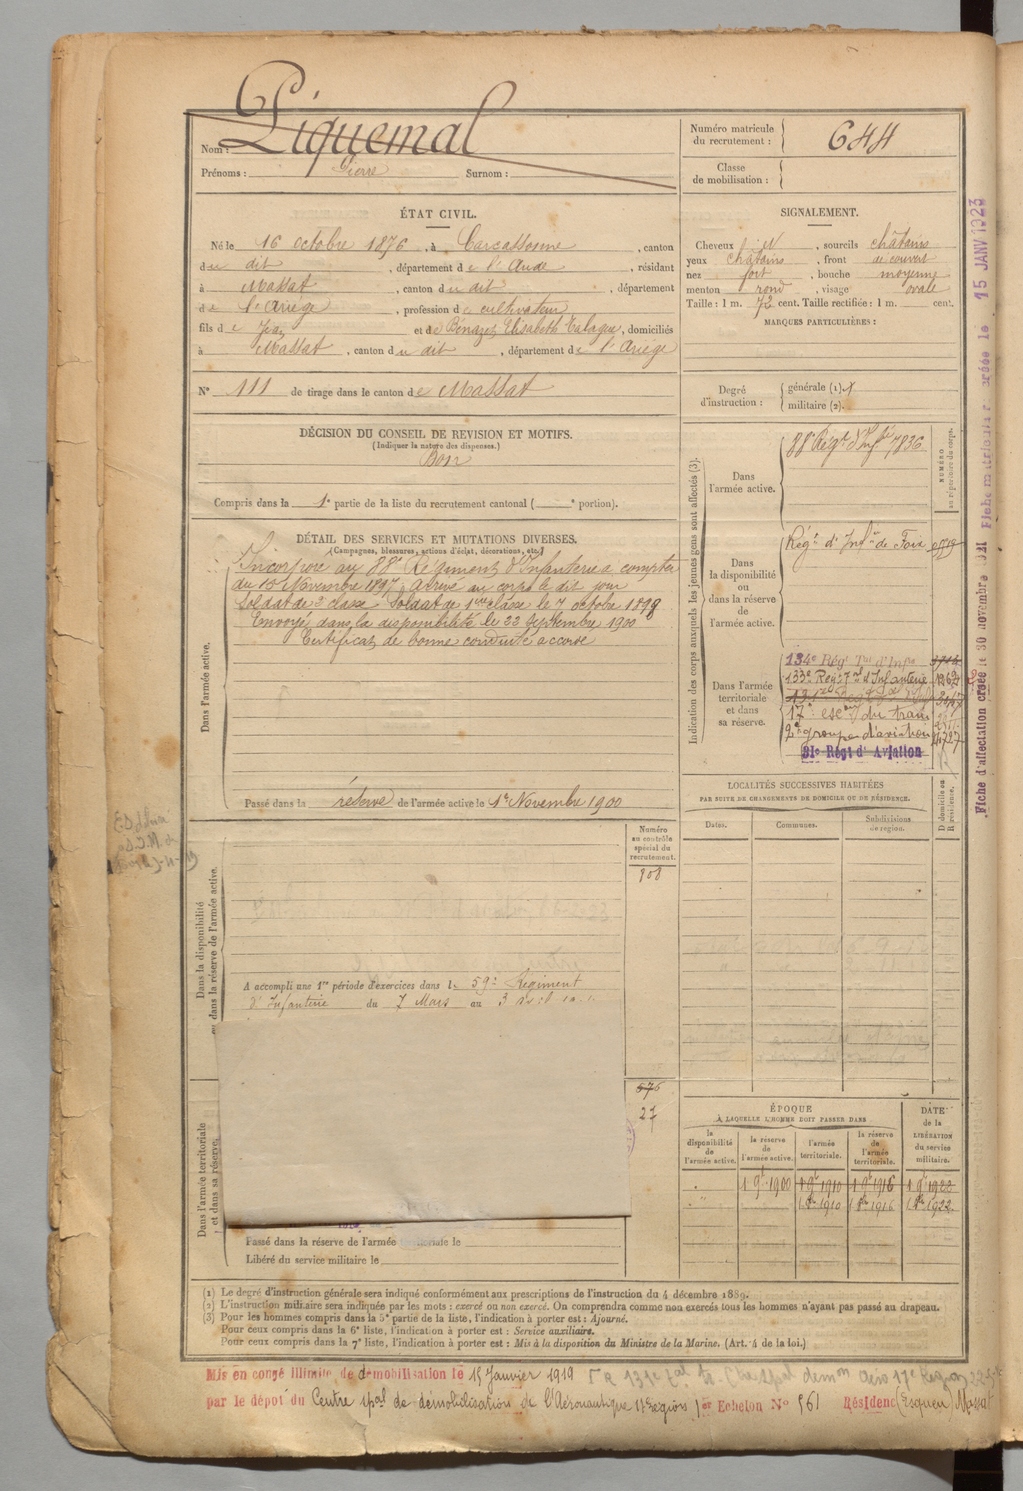 Nom : Piquemal
Prénoms : Pierre Surnom :
Numéro matricule
du recrutement : 644
Classe
de mobilisation :
ÉTAT CIVIL.
Né le 16 octobre 1876, à Carcassonne, canton
du dit, département de l'Aude, résidant
à Massat, canton du dit, département
de l'Ariège, profession de cultivateur
fils de Jean et de Bénazet Elisabeth, domiciliés
à Massat, canton du dit, département de l'Ariège
N° 111 de tirage dans le canton de Massat
SIGNALEMENT.
Cheveux, sourcils châtains
yeux châtains, front découvert
nez fort, bouche moyenne
menton rond, visage ovale
Taille : 1 m. 72 cent. Taille rectifiée : 1 m. cent.
MARQUES PARTICULIÈRES :
Degré
d'instruction :
générale (1).
militaire (2).
DÉCISION DU CONSEIL DE REVISION ET MOTIFS.
(Indiquer la nature des dispenses.)
Bon
Compris dans la 1e partie de la liste du recrutement cantonal ( e portion).
DÉTAIL DES SERVICES ET MUTATIONS DIVERSES.
(Campagnes, blessures, actions d'éclat, décorations, etc.)
Dans l'armée active.
Incorporé au 88e Régiment d'Infanterie à compter
du 15 Novembre 1897, arrivé au corps le dit jour
Soldat de 2e classe. Soldat de 1ère classe le 7 octobre 1898
Envoyé dans la disponibilité le 22 Septembre 1900
Certificat de bonne conduite accordé
Passé dans la réserve de l'armée active le 1er Novembre 1900
Indication des corps auxquels les jeunes gens sont affectés (3).
NUMÉRO
au répertoire du corps.
Dans
l'armée active.
88e Régt d'Inf. 7836
Dans
la disponibilité
ou
dans la réserve
de
l'armée active.
Régt d'Infie de Foix
Dans l'armée
territoriale
et dans
sa réserve.
134e Régt Tal d'Infie
133e Régt Tal d'Infanterie
17e esc. du train
2e groupe d'aviation
31e Régt d'Aviation
LOCALITÉS SUCCESSIVES HABITÉES
PAR SUITE DE CHANGEMENTS DE DOMICILE OU DE RÉSIDENCE.
D domicile ou
R résidence.
Dates.
Communes.
Subdivisions
de région.
Dans la disponibilité
ou dans la réserve de l'armée active.
Numéro
au contrôle
spécial du
recrutement.
908
A accompli une 1re période d'exercices dans le 59e Régiment
d'Infanterie du 7 Mars au 3
Dans l'armée territoriale
et dans sa réserve.
576
27
Passé dans la réserve de l'armée territoriale le
Libéré du service militaire le
ÉPOQUE
À LAQUELLE L'HOMME DOIT PASSER DANS
la
disponibilité
de
l'armée active.
la réserve
de
l'armée active.
l'armée
territoriale.
la réserve
de
l'armée
territoriale.
DATE
de la
LIBÉRATION
du service
militaire.
1 9bre 1900 1 9bre 1910 1 9bre 1916 1 9bre 1922
1 8bre 1910 1 8bre 1916 1 8bre 1922
(1) Le degré d'instruction générale sera indiqué conformément aux prescriptions de l'instruction du 4 décembre 1889.
(2) L'instruction militaire sera indiquée par les mots : exercé ou non exercé. On comprendra comme non exercés tous les hommes n'ayant pas passé au drapeau.
(3) Pour les hommes compris dans la 5e partie de la liste, l'indication à porter est : Ajourné.
Pour ceux compris dans la 6e liste, l'indication à porter est : Service auxiliaire.
Pour ceux compris dans la 7e liste, l'indication à porter est : Mis à la disposition du Ministre de la Marine. (Art. 4 de la loi.)
Mis en congé illimité de démobilisation le 15 Janvier 1919
par le dépôt du Centre pal de démobilisation de l'Aéronautique 17 Région 1er Echelon N° 561 Résidence (Esqueu) Massat
Fiche d'affectation créée le 30 novembre 1921 Fiche matriculaire créée le 15 JANV 1923